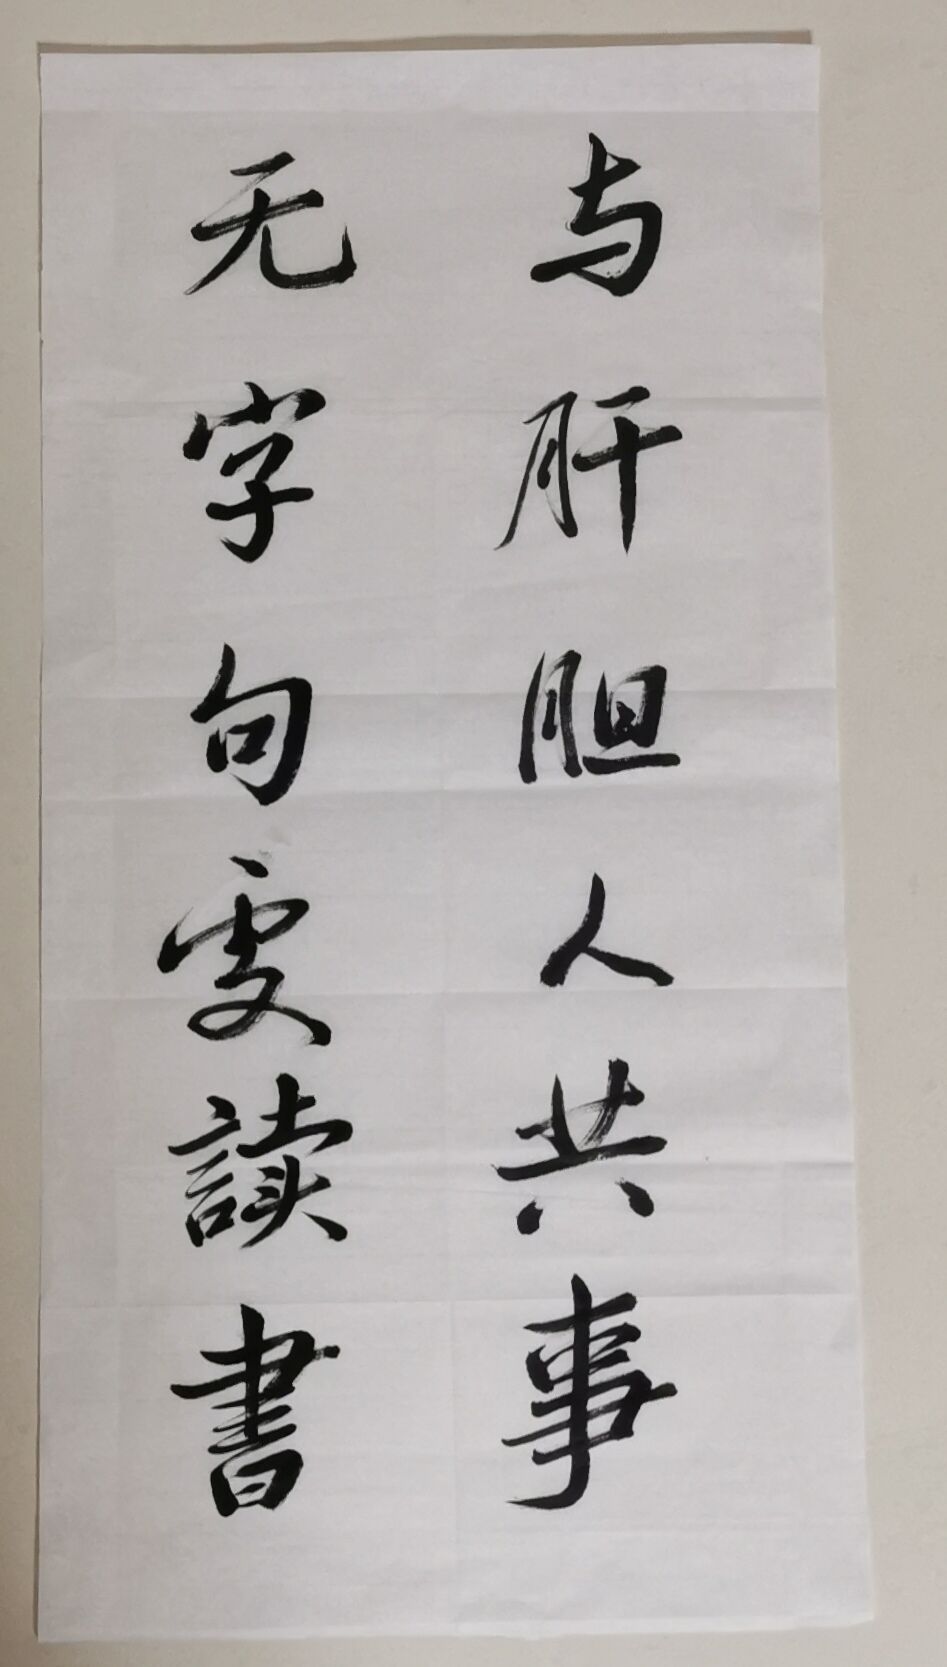 与肝胆人共事
无字句䖏读書